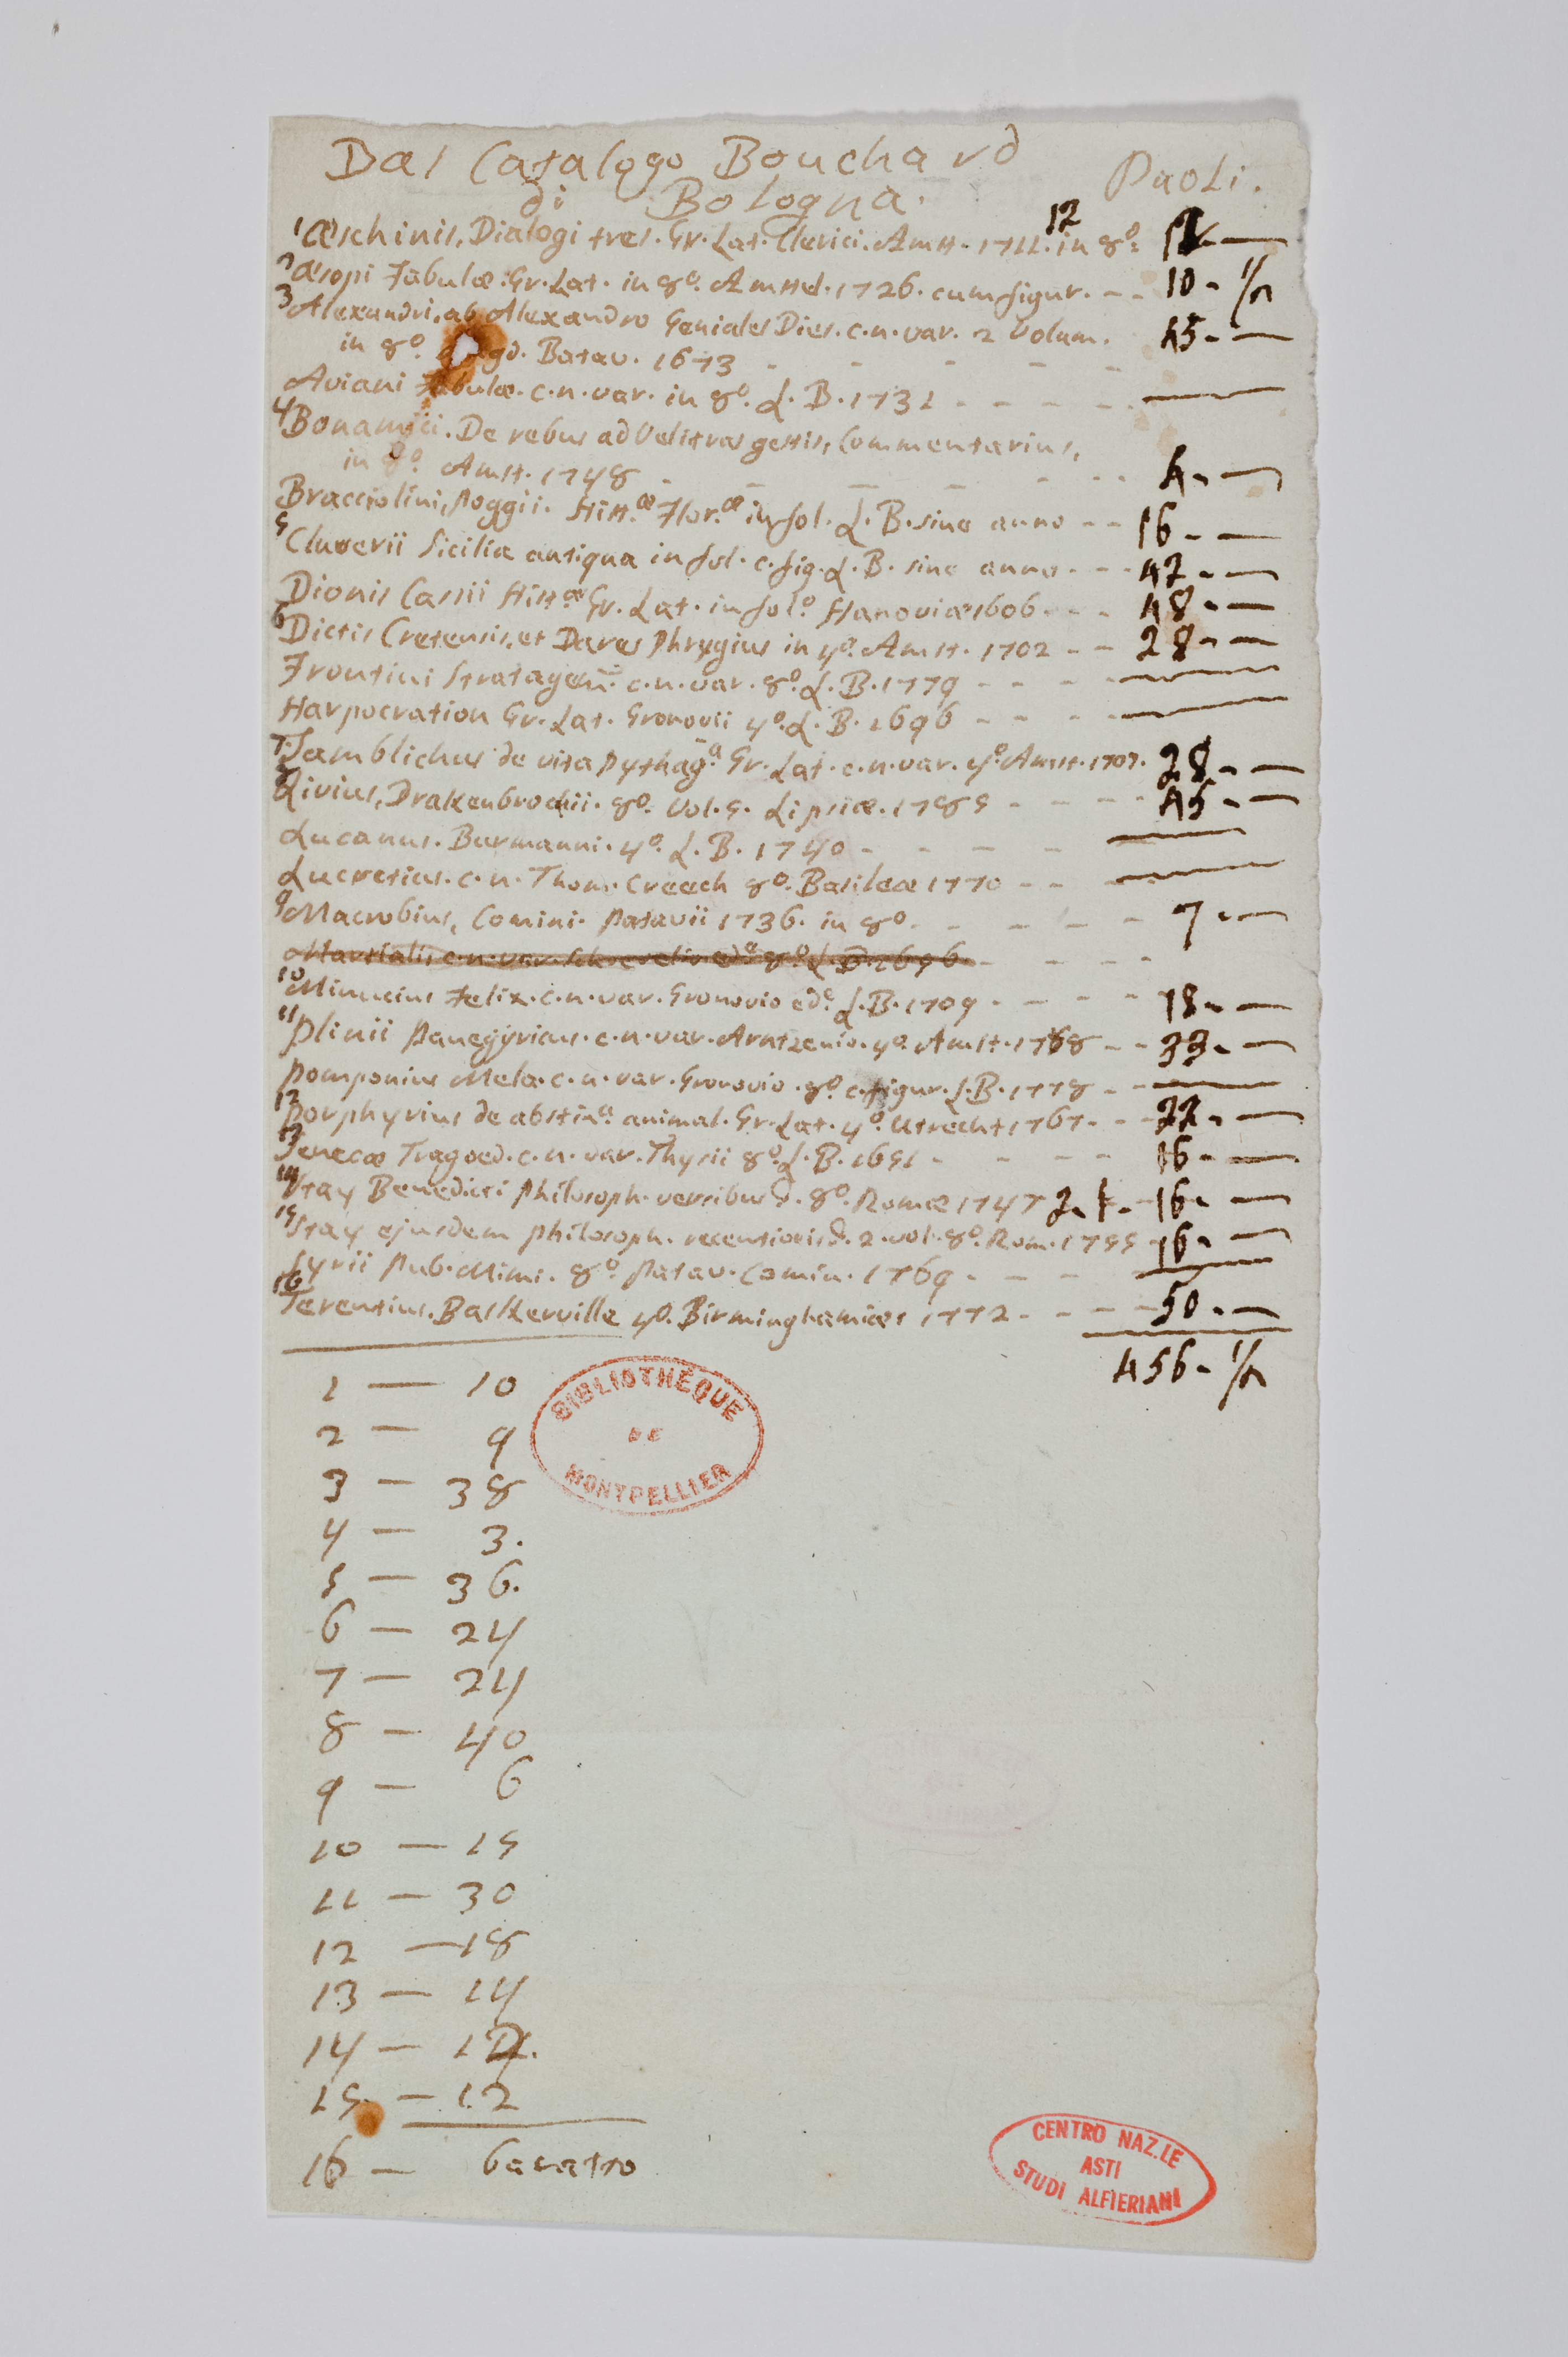 Dal Catalogo Bouchard
di Bologna.
Paoli.
1 Æschinis, Dialogi tres. Gr. Lat. Clerici. Amst. 1711. in 8º. 12
2 Æsopi Fabulæ. Gr. Lat. in 8º. Amsted. 1726. cum figur. - - 10 - 1/2
3 Alexandri, ab Alexandro Geniales Dies. c. n. var. 2 Volum.
in 8º. Lugd. Batav. 1673 - - - - - 45 - —
Aviani Fabulæ. c. n. var. in 8º. L. B. 1731 - - - - - —
4 Bonamici. De rebus ad Velitras gestis, Commentarius,
in 8º. Amst. 1748 - - - - - - - 4 - —
Bracciolini, Poggii. Hist.æ Flor.æ in fol. L. B. sine anno - - 16 - —
5 Cluverii Sicilia antiqua in fol. c. fig. L. B. sine anno - - - 42 - —
Dionis Cassii Hist.æ Gr. Lat. in folº Hanoviæ 1606 - - - 48 - —
6 Dictis Cretensis, et Dares Phrygius in 4º. Amst. 1702 - - 28 - —
Frontini Stratagem. c. n. var. 8º. L. B. 1779 - - - - —
Harpocration Gr. Lat. Gronovii 4º. L. B. 1696 - - - - —
7 Jamblichus de vita Pythag.a Gr. Lat. c. n. var. 4º. Amst. 1707. 28 - —
8 Livius, Drakenbrochii. 8º. Vol. 5. Lipsiæ. 1785 - - - - 45 - —
Lucanus. Burmanni. 4º. L. B. 1740 - - - - —
Lucretius. c. n. Thom. Creech 8º. Basileæ 1770 - - - —
9 Macrobius, Comini. Patavii 1736. in 8º. - - - - 7 - —
Martialis c. n. var. Schrevelio ed.a 8º. L. B. 1656 - - - -
10 Minucius Felix. c. n. var. Gronovio ed.e L. B. 1709 - - - - 18 - —
11 Plinii Panegyricus. c. n. var. Arntzenio. 4º. Amst. 1768 - - 33 - —
Pomponius Mela. c. n. var. Gronovio. 8º. c. figur. L. B. 1778 - - —
12 Porphyrius de abstin.a animal. Gr. Lat. 4º. Utrecht 1767 - - - 22 - —
13 Senecæ Tragoed. c. n. var. Thysii 8º. L. B. 1651 - - - - 16 - —
14 Stay Benedicti Philosoph. versibus 8º. Romæ 1747 - 16 - —
15 Stay ejusdem Philosoph. recentioris 2. vol. 8º. Rom. 1755 - 16 - —
Syrii Pub. Mimi. 8º. Patav. Comin. 1769 - - - —
16 Terentius. Baskerville 4º. Birminghamiæ 1772 - - - - 50 - —
456 - 1/2
1 — 10
2 — 9
3 — 38
4 — 3.
5 — 36.
6 — 24
7 — 24
8 — 40
9 — 6
10 — 15
11 — 30
12 — 18
13 — 14
14 — 12.
15. — 12
16 — baratto
BIBLIOTHÈQUE
DE
MONTPELLIER
CENTRO NAZ.LE
ASTI
STUDI ALFIERIANI